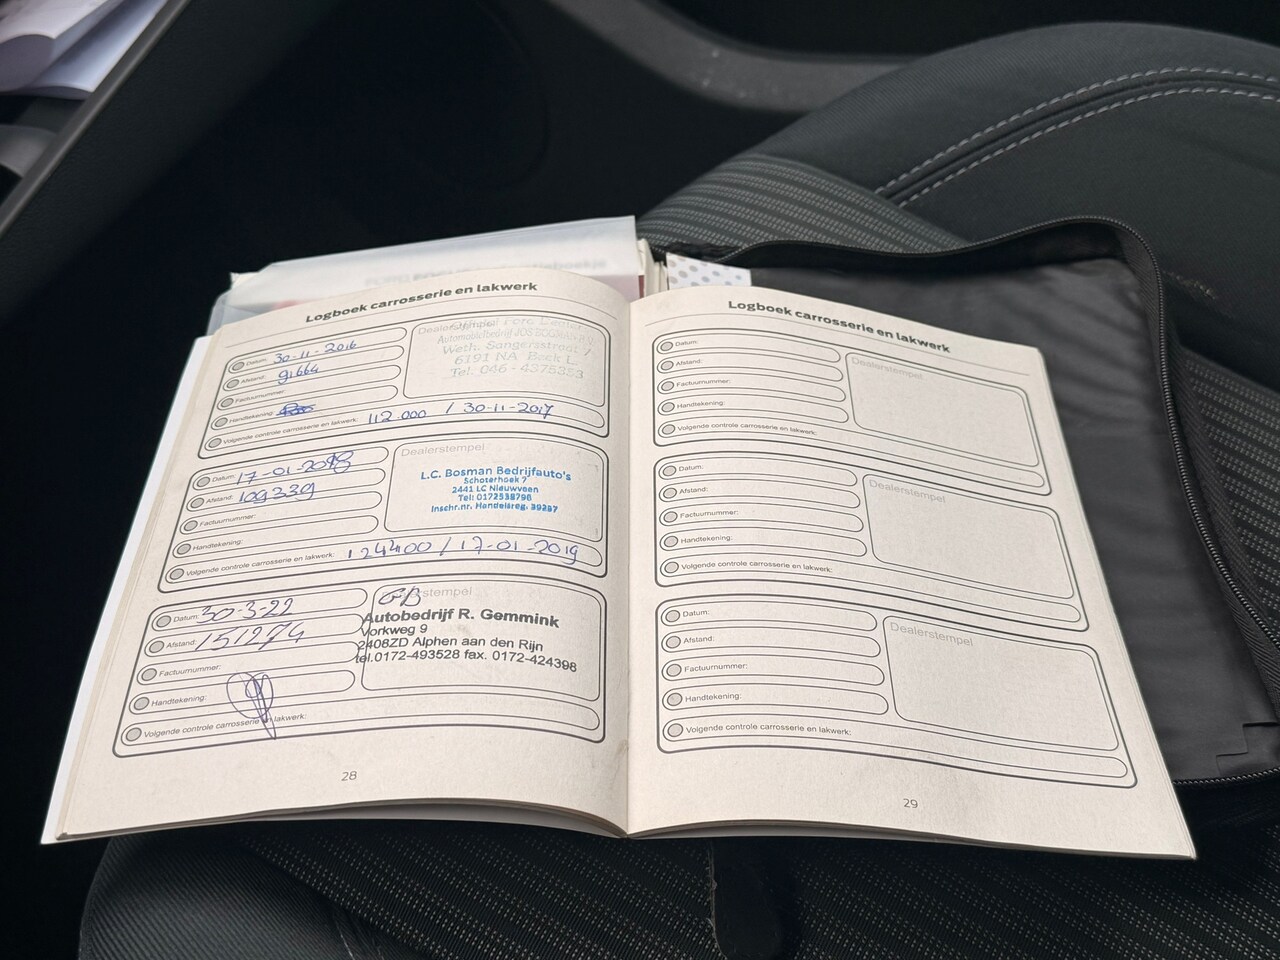 Logboek carrosserie en lakwerk
Datum: 30-11-2016
Afstand: 91664
Factuurnummer:
Handtekening:
Volgende controle carrosserie en lakwerk: 112.000 / 30-11-2017
Dealerstempel Ford Dealer
Automobielbedrijf
Weth. Sangersstraat 7
6191 NA Beek L.
Tel. 046 - 4375353
Datum: 17-01-2018
Afstand: 109339
Factuurnummer:
Handtekening:
Volgende controle carrosserie en lakwerk: 124400 / 17-01-2019
Dealerstempel
L.C. Bosman Bedrijfauto's
Schoterhoek 7
2441 LC Nieuwveen
Tel: 0172538796
Inschr.nr. Handelsreg. 39287
Datum: 30-3-22
Afstand: 151274
Factuurnummer:
Handtekening:
Volgende controle carrosserie en lakwerk:
Dealerstempel
Autobedrijf R. Gemmink
Vorkweg 9
2408ZD Alphen aan den Rijn
tel.0172-493528 fax. 0172-424398
28
Logboek carrosserie en lakwerk
Datum:
Afstand:
Factuurnummer:
Handtekening:
Volgende controle carrosserie en lakwerk:
Dealerstempel
Datum:
Afstand:
Factuurnummer:
Handtekening:
Volgende controle carrosserie en lakwerk:
Dealerstempel
Datum:
Afstand:
Factuurnummer:
Handtekening:
Volgende controle carrosserie en lakwerk:
Dealerstempel
29